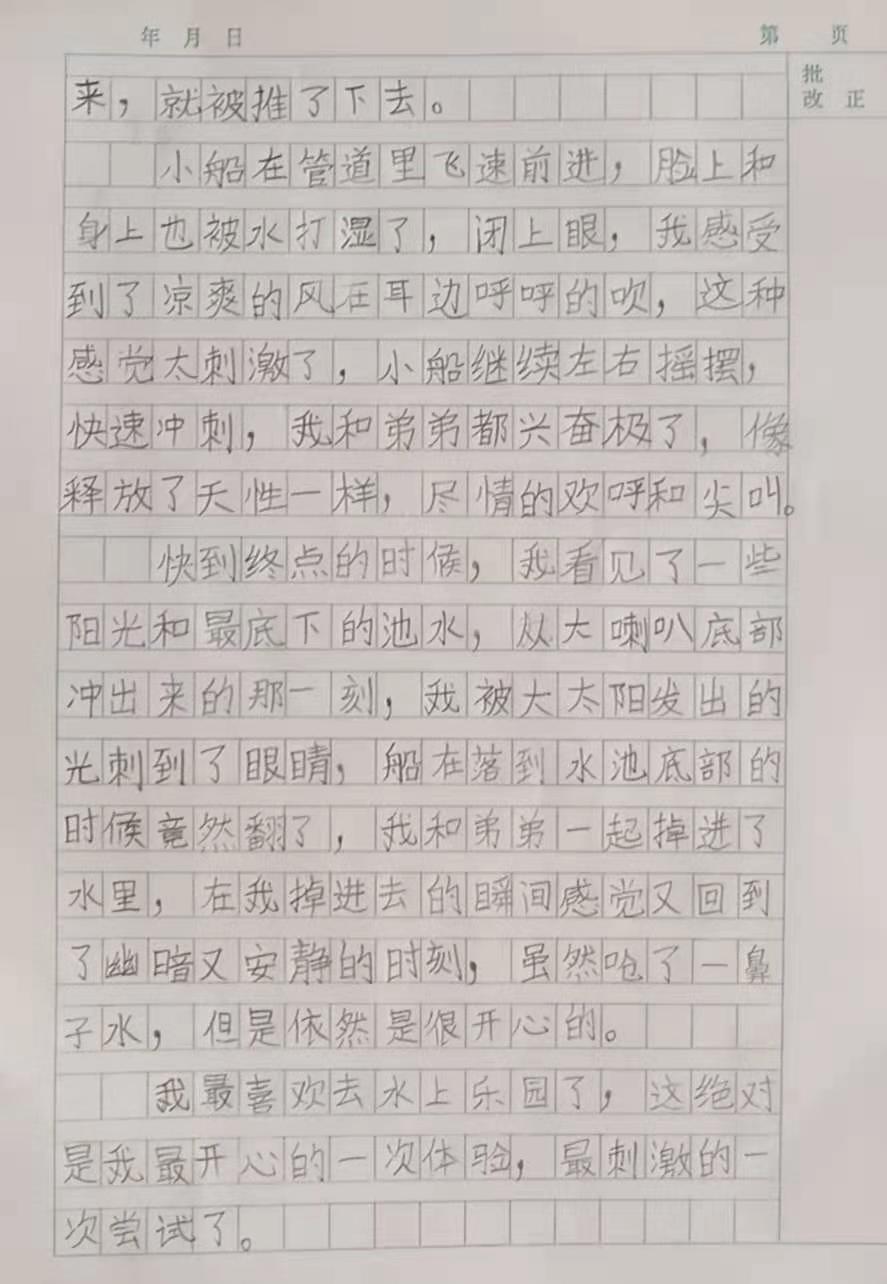 年 月 日 第 页
批
改 正
来，就被推了下去。
小船在管道里飞速前进，脸上和
身上也被水打湿了，闭上眼，我感受
到了凉爽的风在耳边呼呼的吹，这种
感觉太刺激了，小船继续左右摇摆，
快速冲刺，我和弟弟都兴奋极了，像
释放了天性一样，尽情的欢呼和尖叫。
快到终点的时候，我看见了一些
阳光和最底下的池水，从大喇叭底部
冲出来的那一刻，我被大太阳发出的
光刺到了眼睛，船在落到水池底部的
时候竟然翻了，我和弟弟一起掉进了
水里，在我掉进去的瞬间感觉又回到
了幽暗又安静的时刻，虽然呛了一鼻
子水，但是依然是很开心的。
我最喜欢去水上乐园了，这绝对
是我最开心的一次体验，最刺激的一
次尝试了。